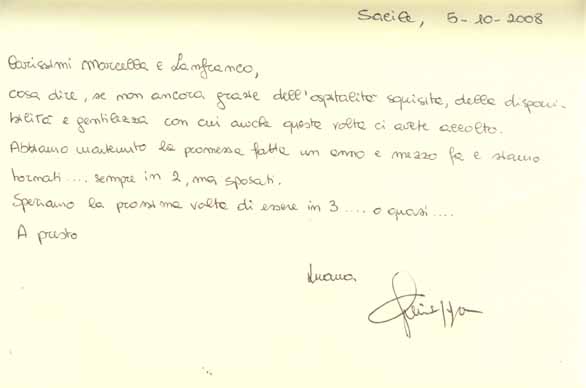 Sacile, 5-10-2008
Carissimi Marcella e Lanfranco,
cosa dire, se non ancora grazie dell'ospitalità squisita, della disponi-
bilità e gentilezza con cui anche questa volta ci avete accolto.
Abbiamo mantenuto la promessa fatta un anno e mezzo fa e siamo
tornati .... sempre in 2, ma sposati.
Speriamo la prossima volta di essere in 3 .... o quasi ....
A presto